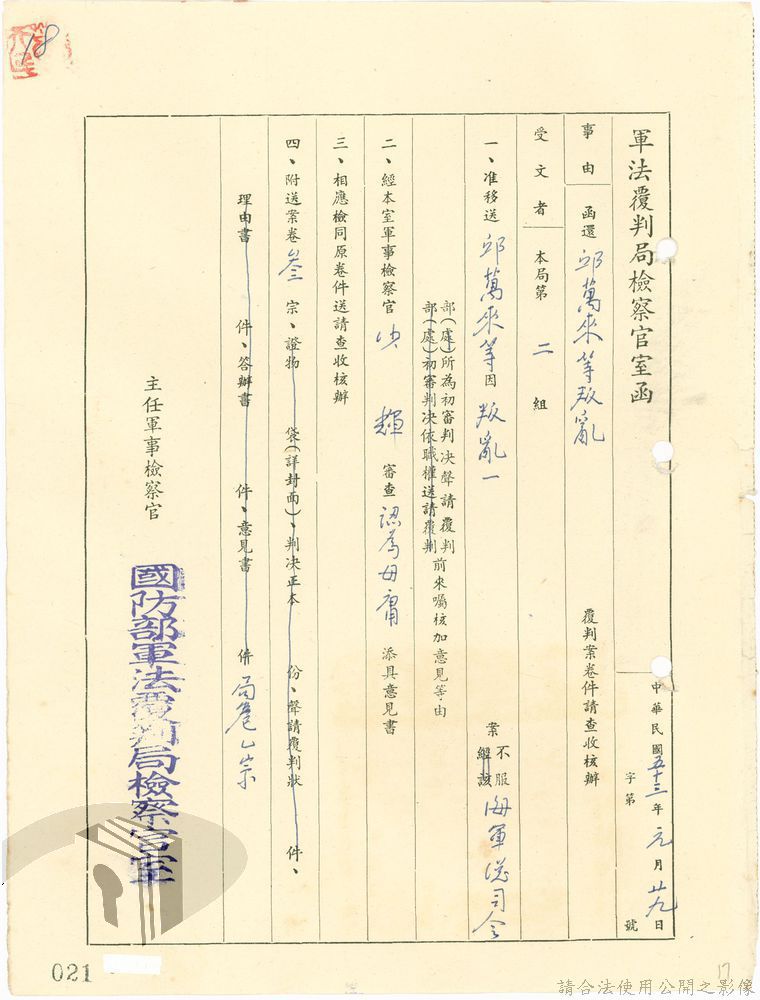 18
軍法覆判局檢察官室函
中華民國五十三年元月廿九日
字第　　號
事由 函還邱萬來等叛亂 覆判案卷件請查收核辦
受文者 本局第二組
一、准移送邱萬來等因叛亂一案不服 經該 海軍總司令
部(處)所為初審判決聲請覆判
部(處)初審判決依職權送請覆判
前來囑核加意見等由
二、經本室軍事檢察官 輝 審查認為毋庸添具意見書
三、相應檢同原卷件送請查收核辦
四、附送案卷叁宗、證物　袋(詳封面)、判決正本　份、聲請覆判狀　件、
理由書　件、答辯書　件、意見書　件 局卷乙宗
主任軍事檢察官
國防部軍法覆判局檢察官室
021
17
請合法使用公開之影像